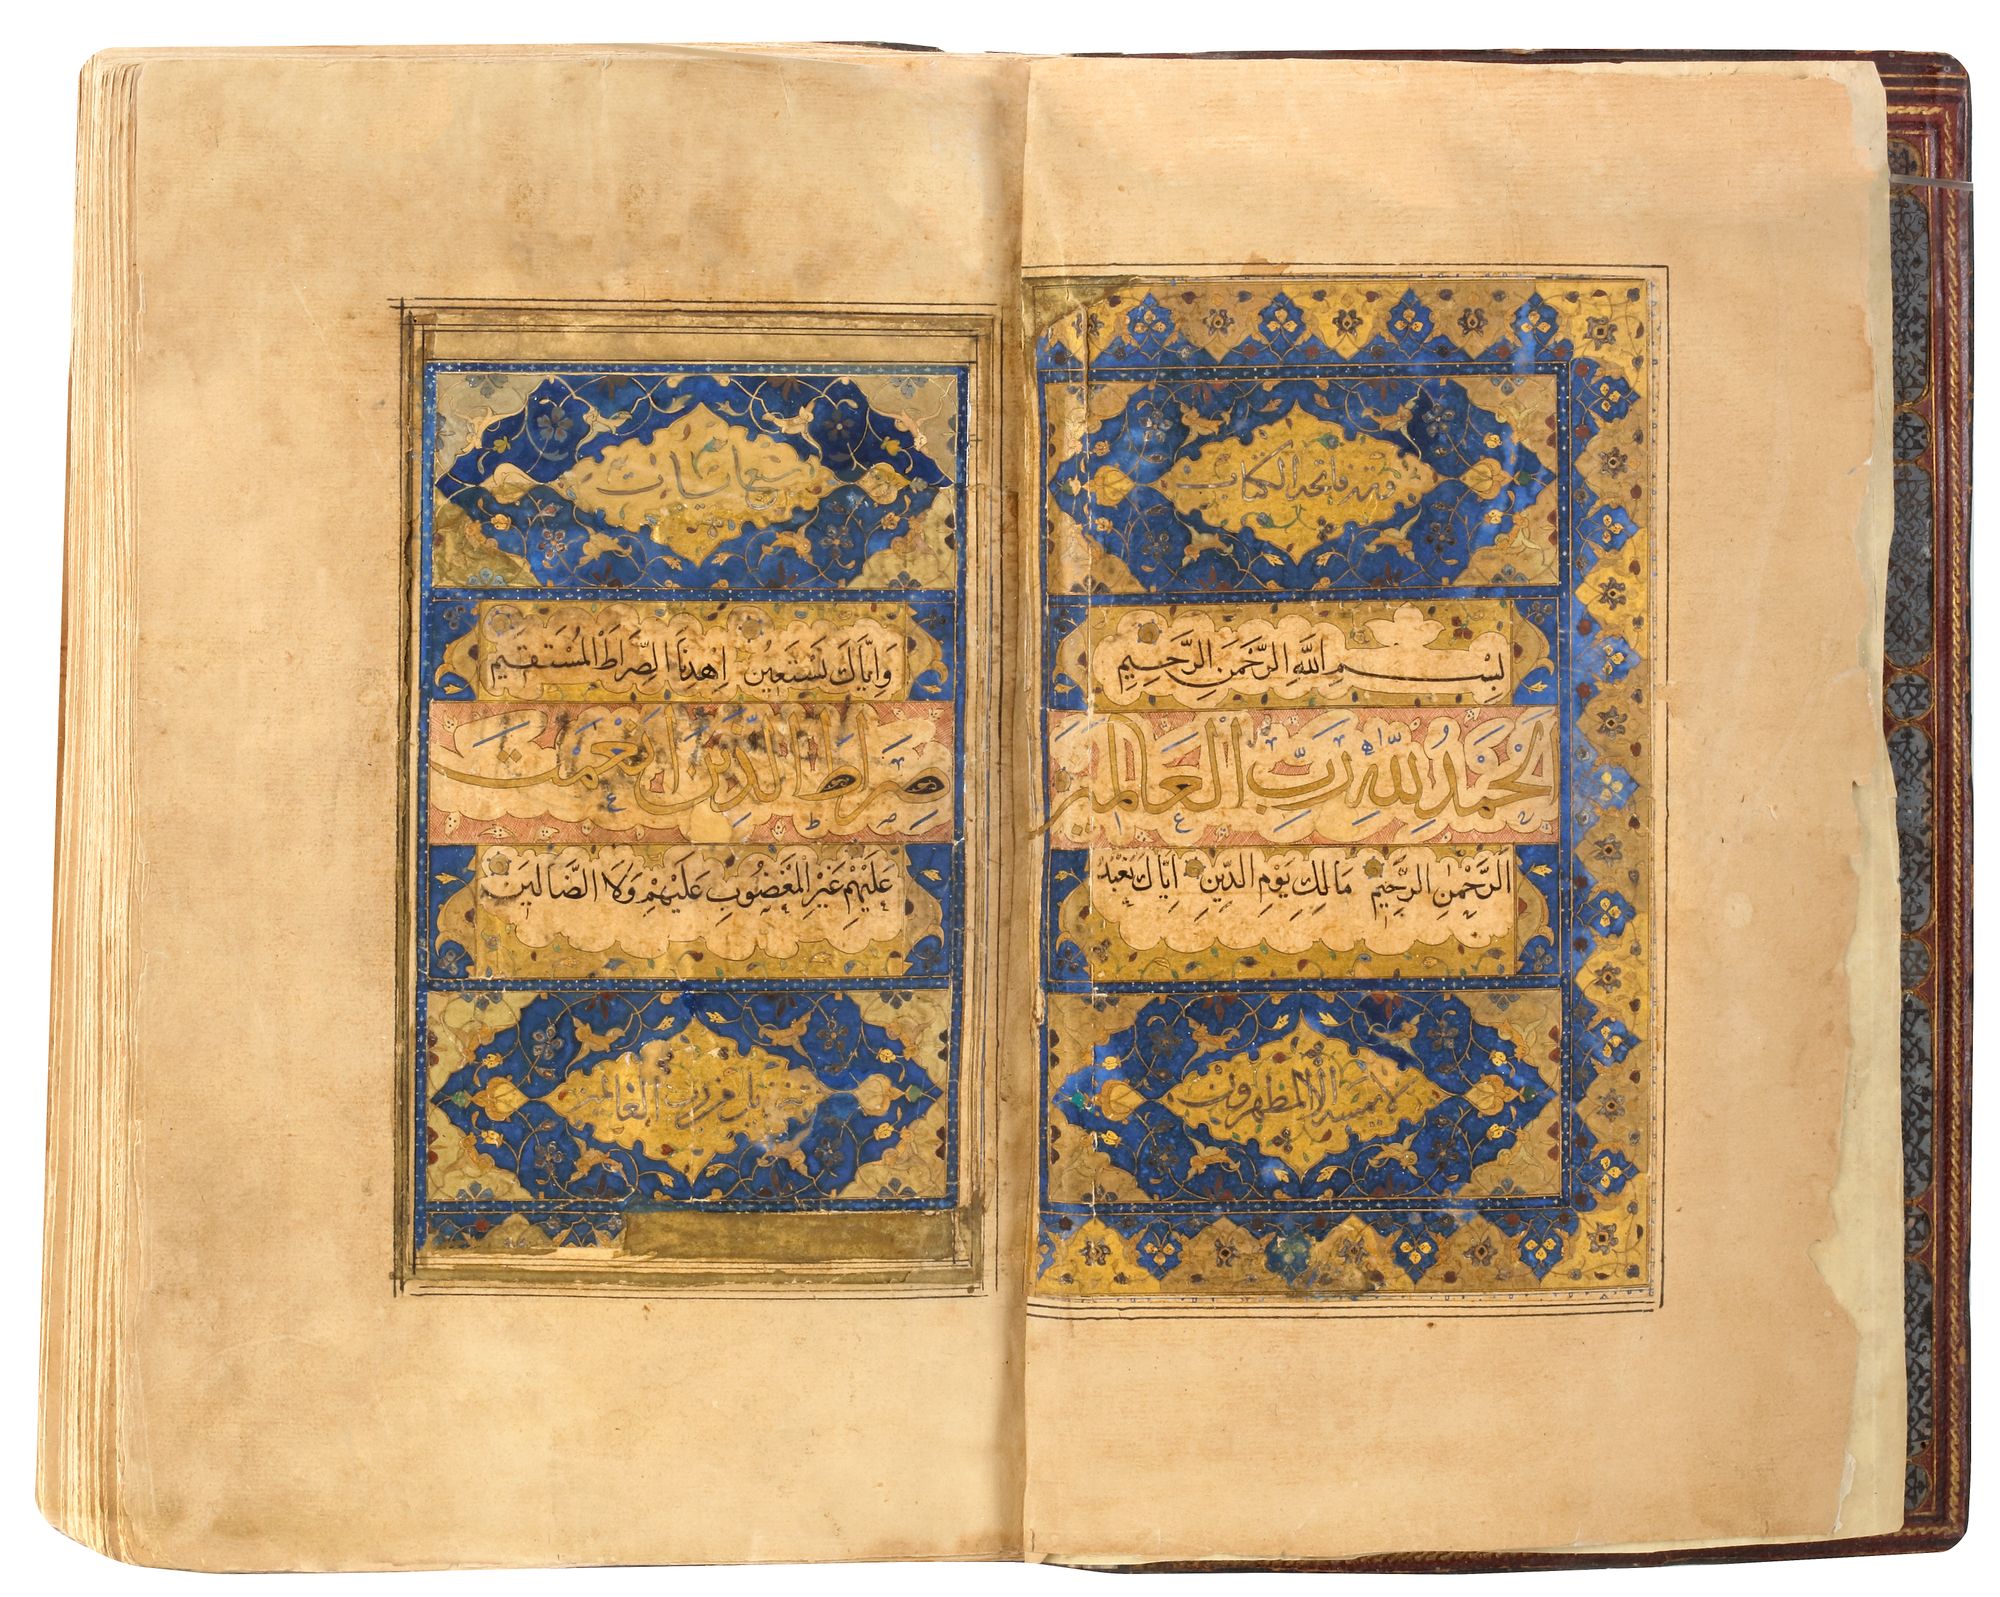 فاتحة الكتاب
بِسْمِ اللَّهِ الرَّحْمَنِ الرَّحِيمِ
اَلْحَمْدُ لِلَّهِ رَبِّ الْعَالَمِينَ
اَلرَّحْمٰنِ الرَّحِيمِ مَالِكِ يَوْمِ الدِّينِ اِيَّاكَ نَعْبُدُ
لا يمسه الا المطهرون
سبع ايات
وَاِيَّاكَ نَسْتَعِينُ اِهْدِنَا الصِّرَاطَ الْمُسْتَقِيمَ
صِرَاطَ الَّذِينَ اَنْعَمْتَ
عَلَيْهِمْ غَيْرِ الْمَغْضُوبِ عَلَيْهِمْ وَلَا الضَّالِّينَ
تنزيل من رب العالمين